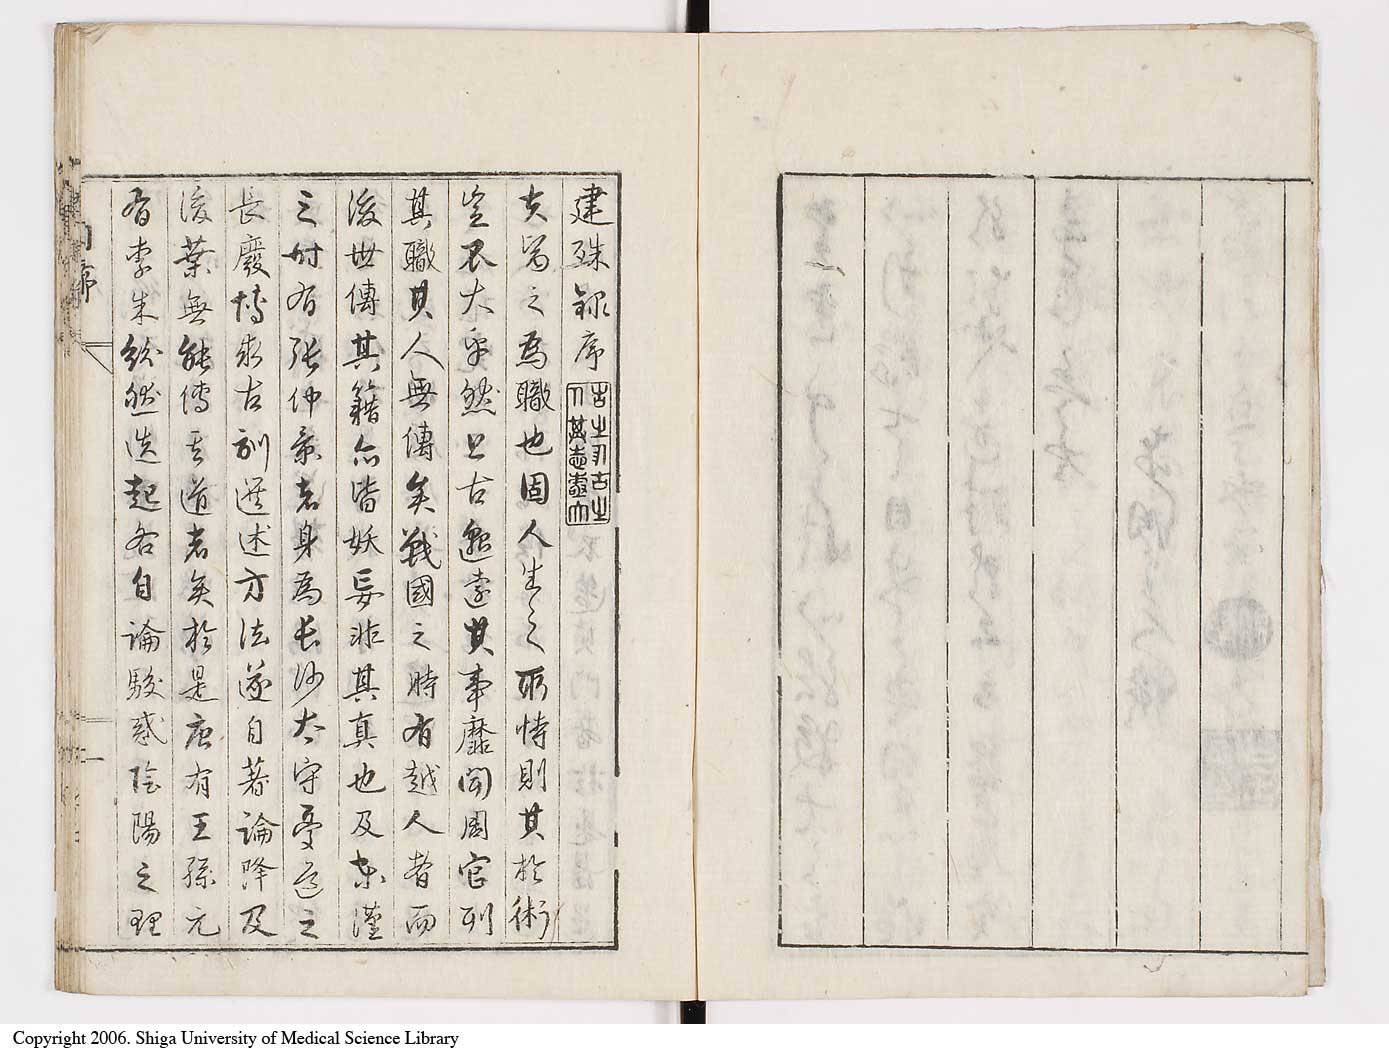 建殊録序
夫醫之為職也固人生之所恃則其於術
豈不大乎然上古邈遠其事靡聞周官列
其職其人無傳矣戰國之時有越人者而
後世傳其籍亦皆妖妄非其真也及東漢
之時有張仲景者身為長沙太守憂道之
長廢博求古訓選述方法遂自著論降及
後葉無能傳其道者矣於是唐有王孫元
有李朱紛然迭起各自論駁惑陰陽之理
序
一
Copyright 2006. Shiga University of Medical Science Library